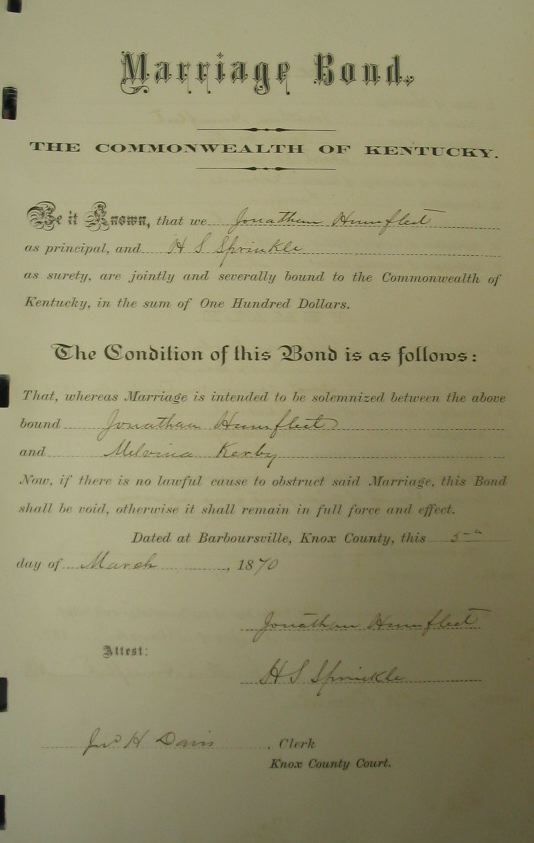 Marriage Bond.
THE COMMONWEALTH OF KENTUCKY.
Be it Known, that we Jonathan Humfleet
as principal, and H S Sprinkle
as surety, are jointly and severally bound to the Commonwealth of
Kentucky, in the sum of One Hundred Dollars.
The Condition of this Bond is as follows:
That, whereas Marriage is intended to be solemnized between the above
bound Jonathan Humfleet
and Melvina Kerby
Now, if there is no lawful cause to obstruct said Marriage, this Bond
shall be void, otherwise it shall remain in full force and effect.
Dated at Barboursville, Knox County, this 5th
day of March, 1870
Jonathan Humfleet
Attest:
H S Sprinkle
Jno H Davis, Clerk
Knox County Court.